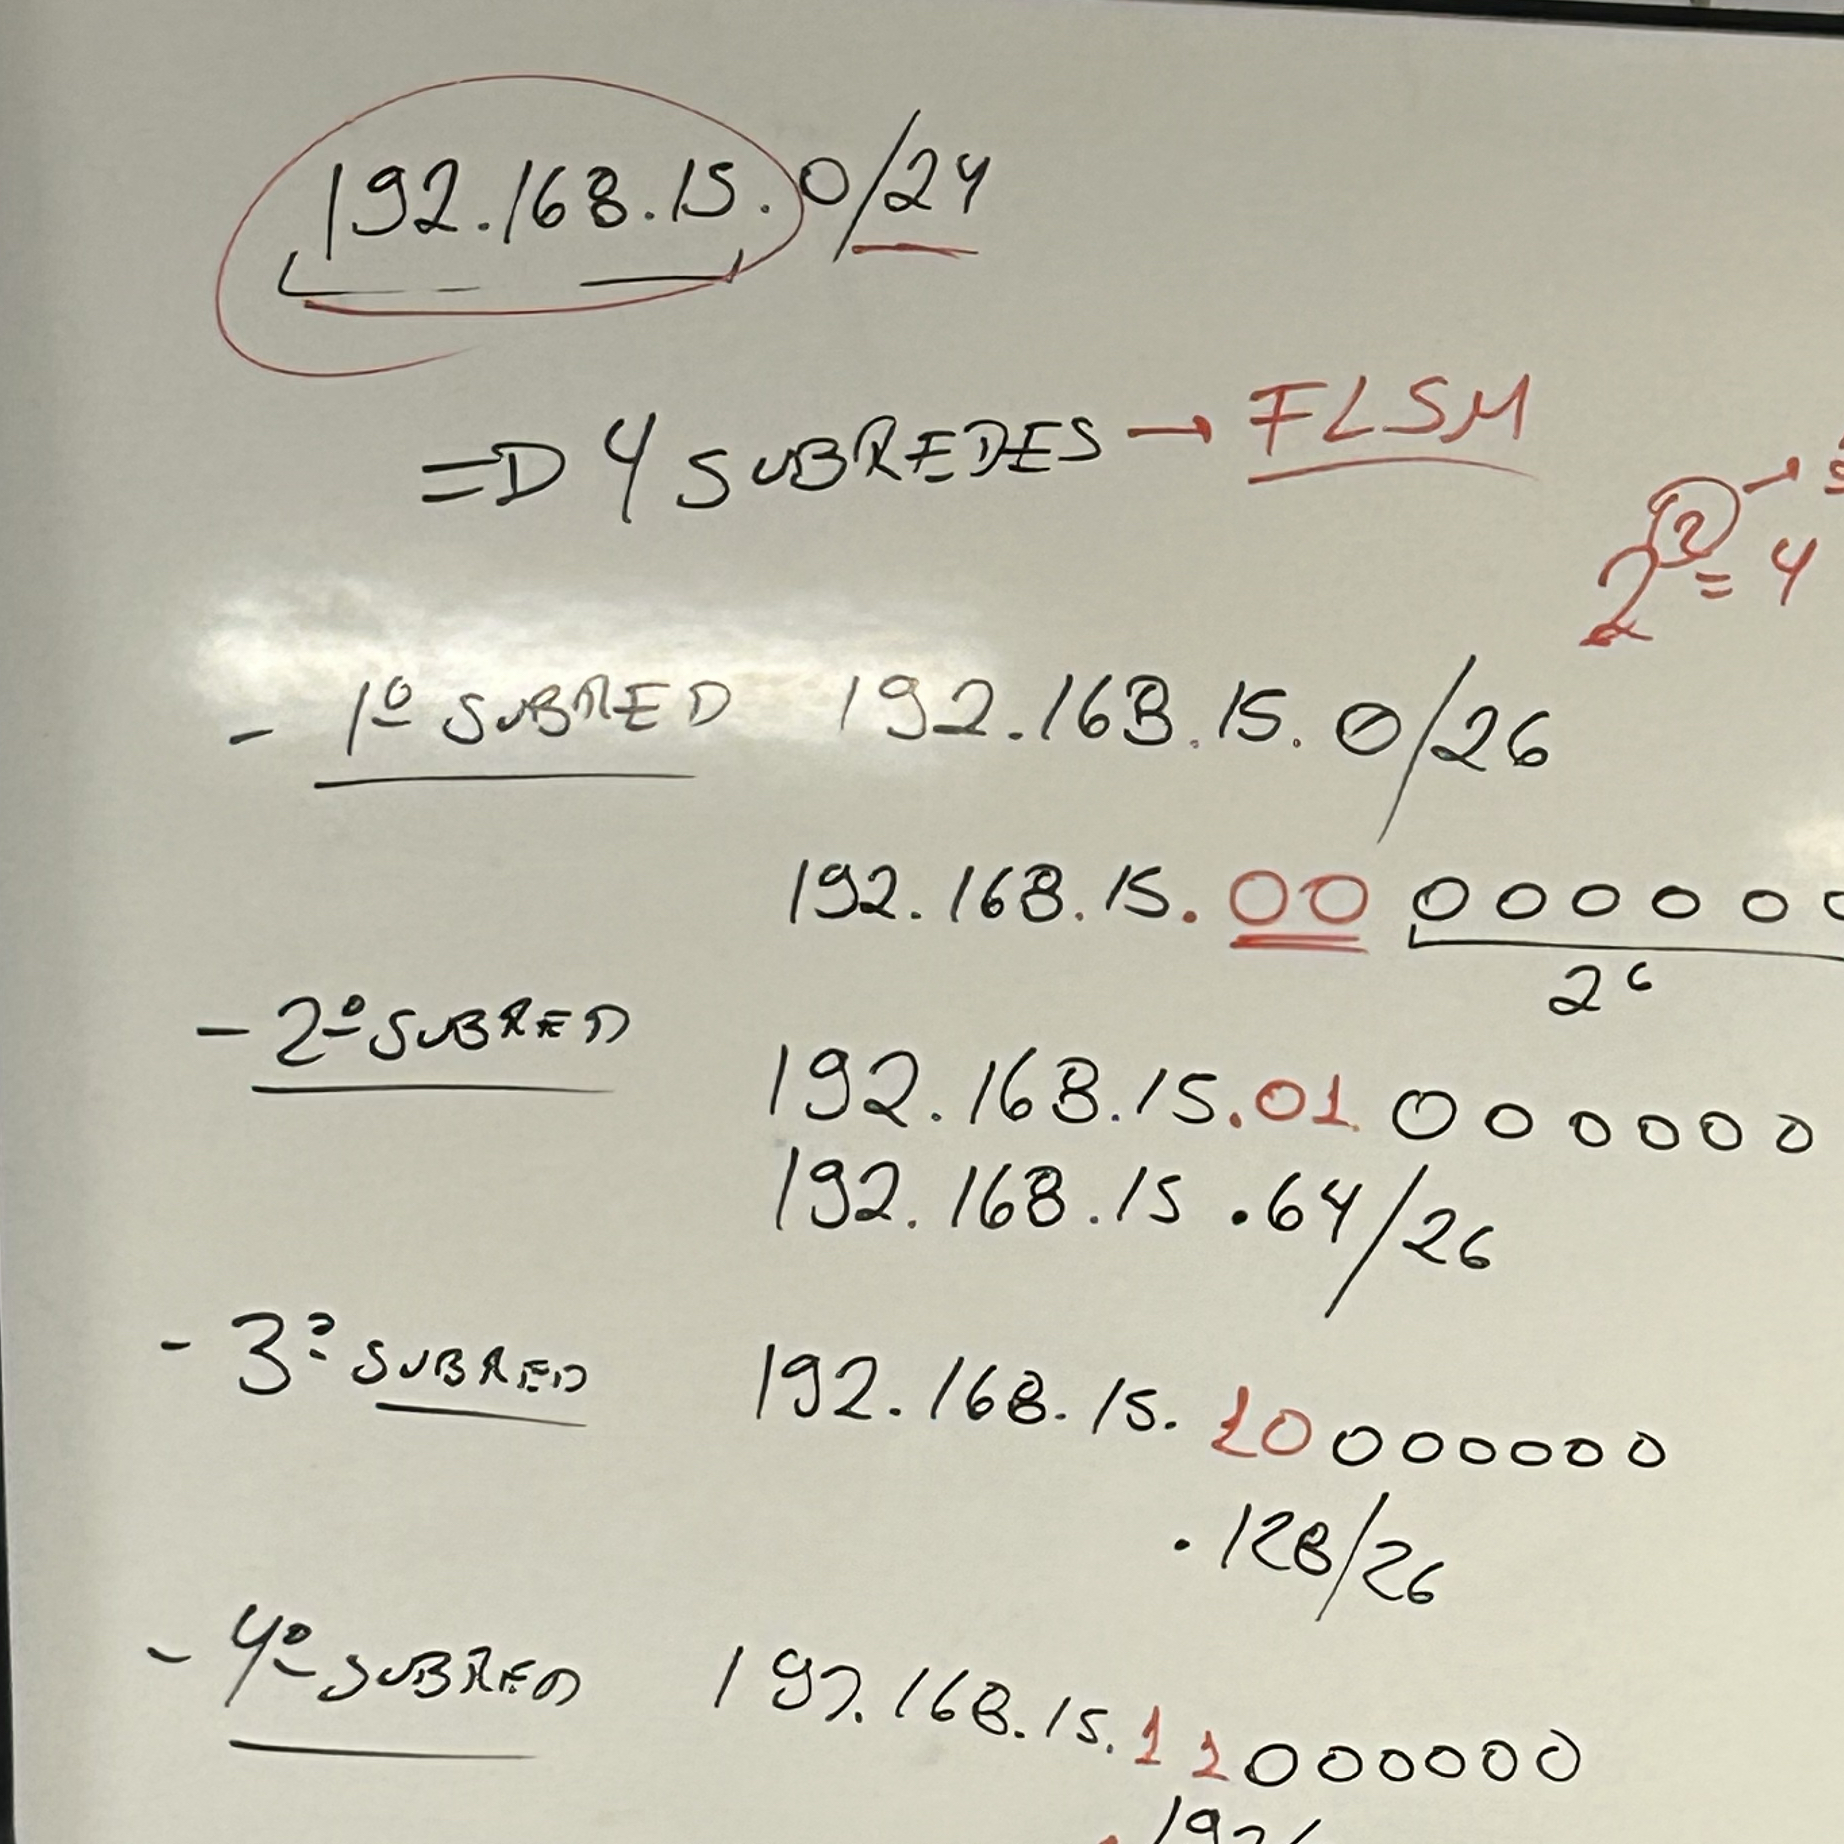 192.168.15.0/24
=D 4 SUBREDES → FLSM
2² = 4
- 1º SUBRED 192.168.15.0/26
192.168.15.00 000000
2⁶
- 2º SUBRED
192.168.15.01 000000
192.168.15.64/26
- 3º SUBRED 192.168.15.10000000
.128/26
- 4º SUBRED 192.168.15.11000000
.192/